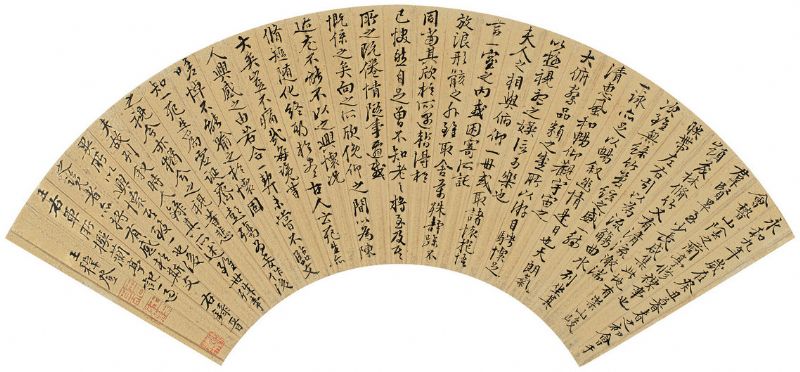 永和九年歲在癸丑暮春之初會于
會稽山陰之蘭亭修禊事也
羣賢畢至少長咸集此地有崇山峻
領茂林修竹又有清流激湍
暎帶左右引以為流觴曲水列坐其
次雖無絲竹管弦之盛一觴
一詠亦足以暢敘幽情是日也天朗氣
清惠風和暢仰觀宇宙之
大俯察品類之盛所以游目騁懷足
以極視聽之娛信可樂也
夫人之相與俯仰一世或取諸懷抱悟
言一室之內或因寄所託
放浪形骸之外雖取舍萬殊靜躁不
同當其欣於所遇暫得於
己怏然自足曾不知老之將至及其
所之既倦情隨事遷感
慨係之矣向之所欣俛仰之間以為陳
迹尤不能不以之興懷況
脩短隨化終期於盡古人云死生亦
大矣豈不痛哉每攬昔
人興感之由若合一契未嘗不臨文
嗟悼不能喻之於懷固
知一死生為虛誕齊彭殤為妄作後
之視今亦猶今之視昔悲
夫故列敘時人錄其所述雖世殊事
異所以興懷其致一也後
之覽者亦將有感於斯文
右錄晉
王右軍禊
王穉登